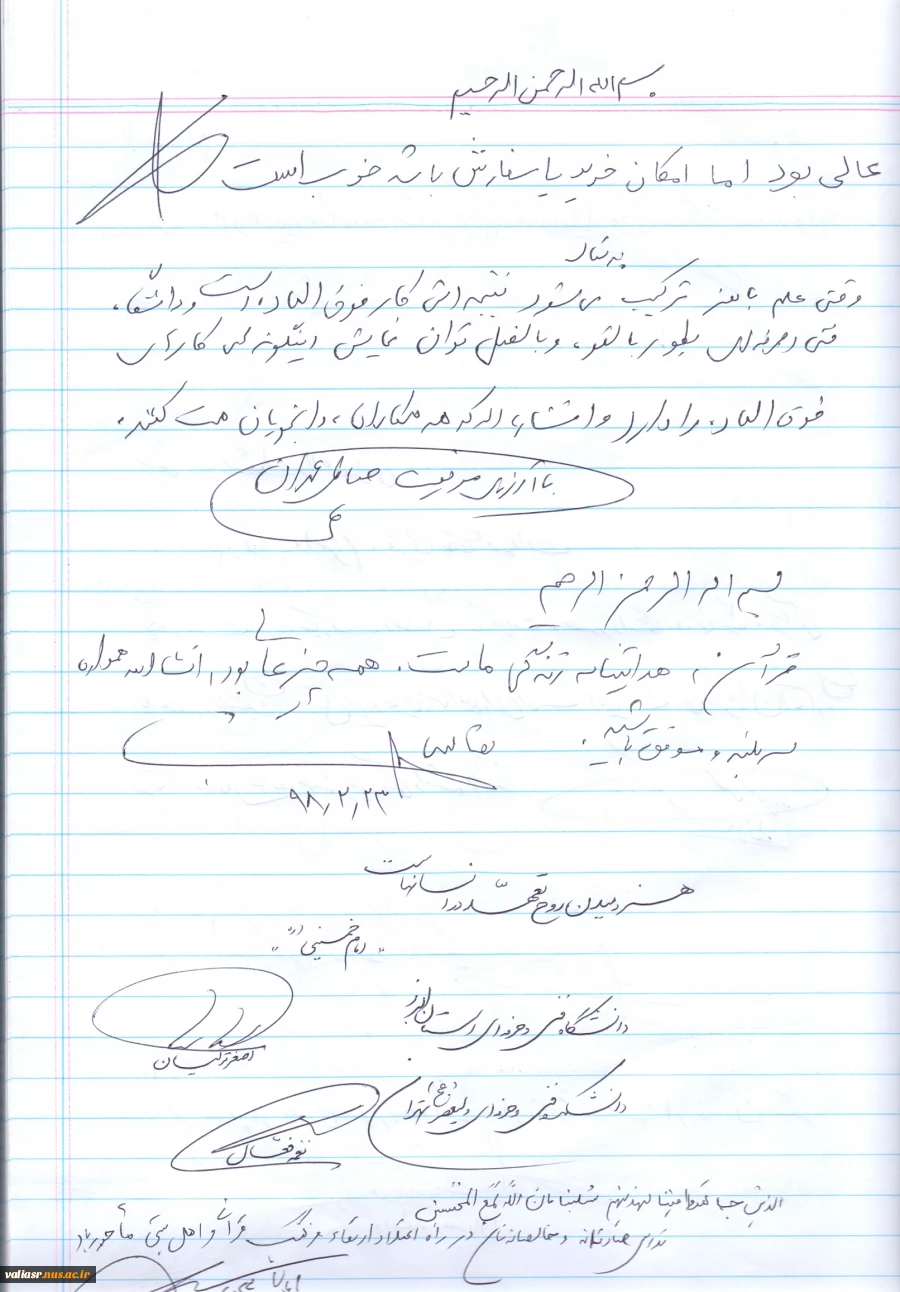 بسم الله الرحمن الرحیم
عالی بود اما امکان خرید یا سفارش باشه خوب است
به شمار
وقتی علم با هنر ترکیب می‌شود نتیجه‌اش کار فوق العاده است و دانشگاه
فنی و حرفه‌ای بطور بالقوه و بالفعل توان نمایش اینگونه کارهای
فوق العاده را دارد و انشاء الله که همکاران، دانشجویان همت کنند.
با آرزوی موفقیت
بسم الله الرحمن الرحیم
قرآن، هدایتنامه زندگی ماست. همه چیز عالی بود، انشاالله همواره
سربلند و موفق باشید.
۹۸٫۲٫۲۳
هنر دمیدن روح تعهد در انسانهاست
"امام خمینی (ره)"
دانشگاه فنی و حرفه‌ای استان البرز
دانشکده فنی و حرفه‌ای ولیعصر (عج) تهران
الذین جاهدوا فینا لنهدینهم سبلنا و ان الله لمع المحسنین
در راه اعتلا و ارتقاء فرهنگ قرآنی و اهل بیتی مأجور باد
valiasr.nus.ac.ir